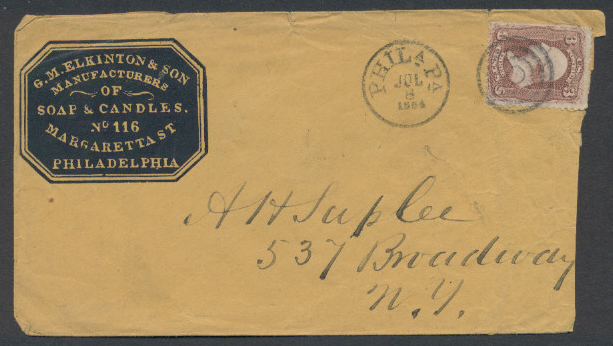 G. M. ELKINTON & SON
MANUFACTURERS
OF
SOAP & CANDLES.
No 116
MARGARETTA ST
PHILADELPHIA
PHILA PA
JUL
8
1864
3 3
A H Suplee
537 Broadway
N.Y.